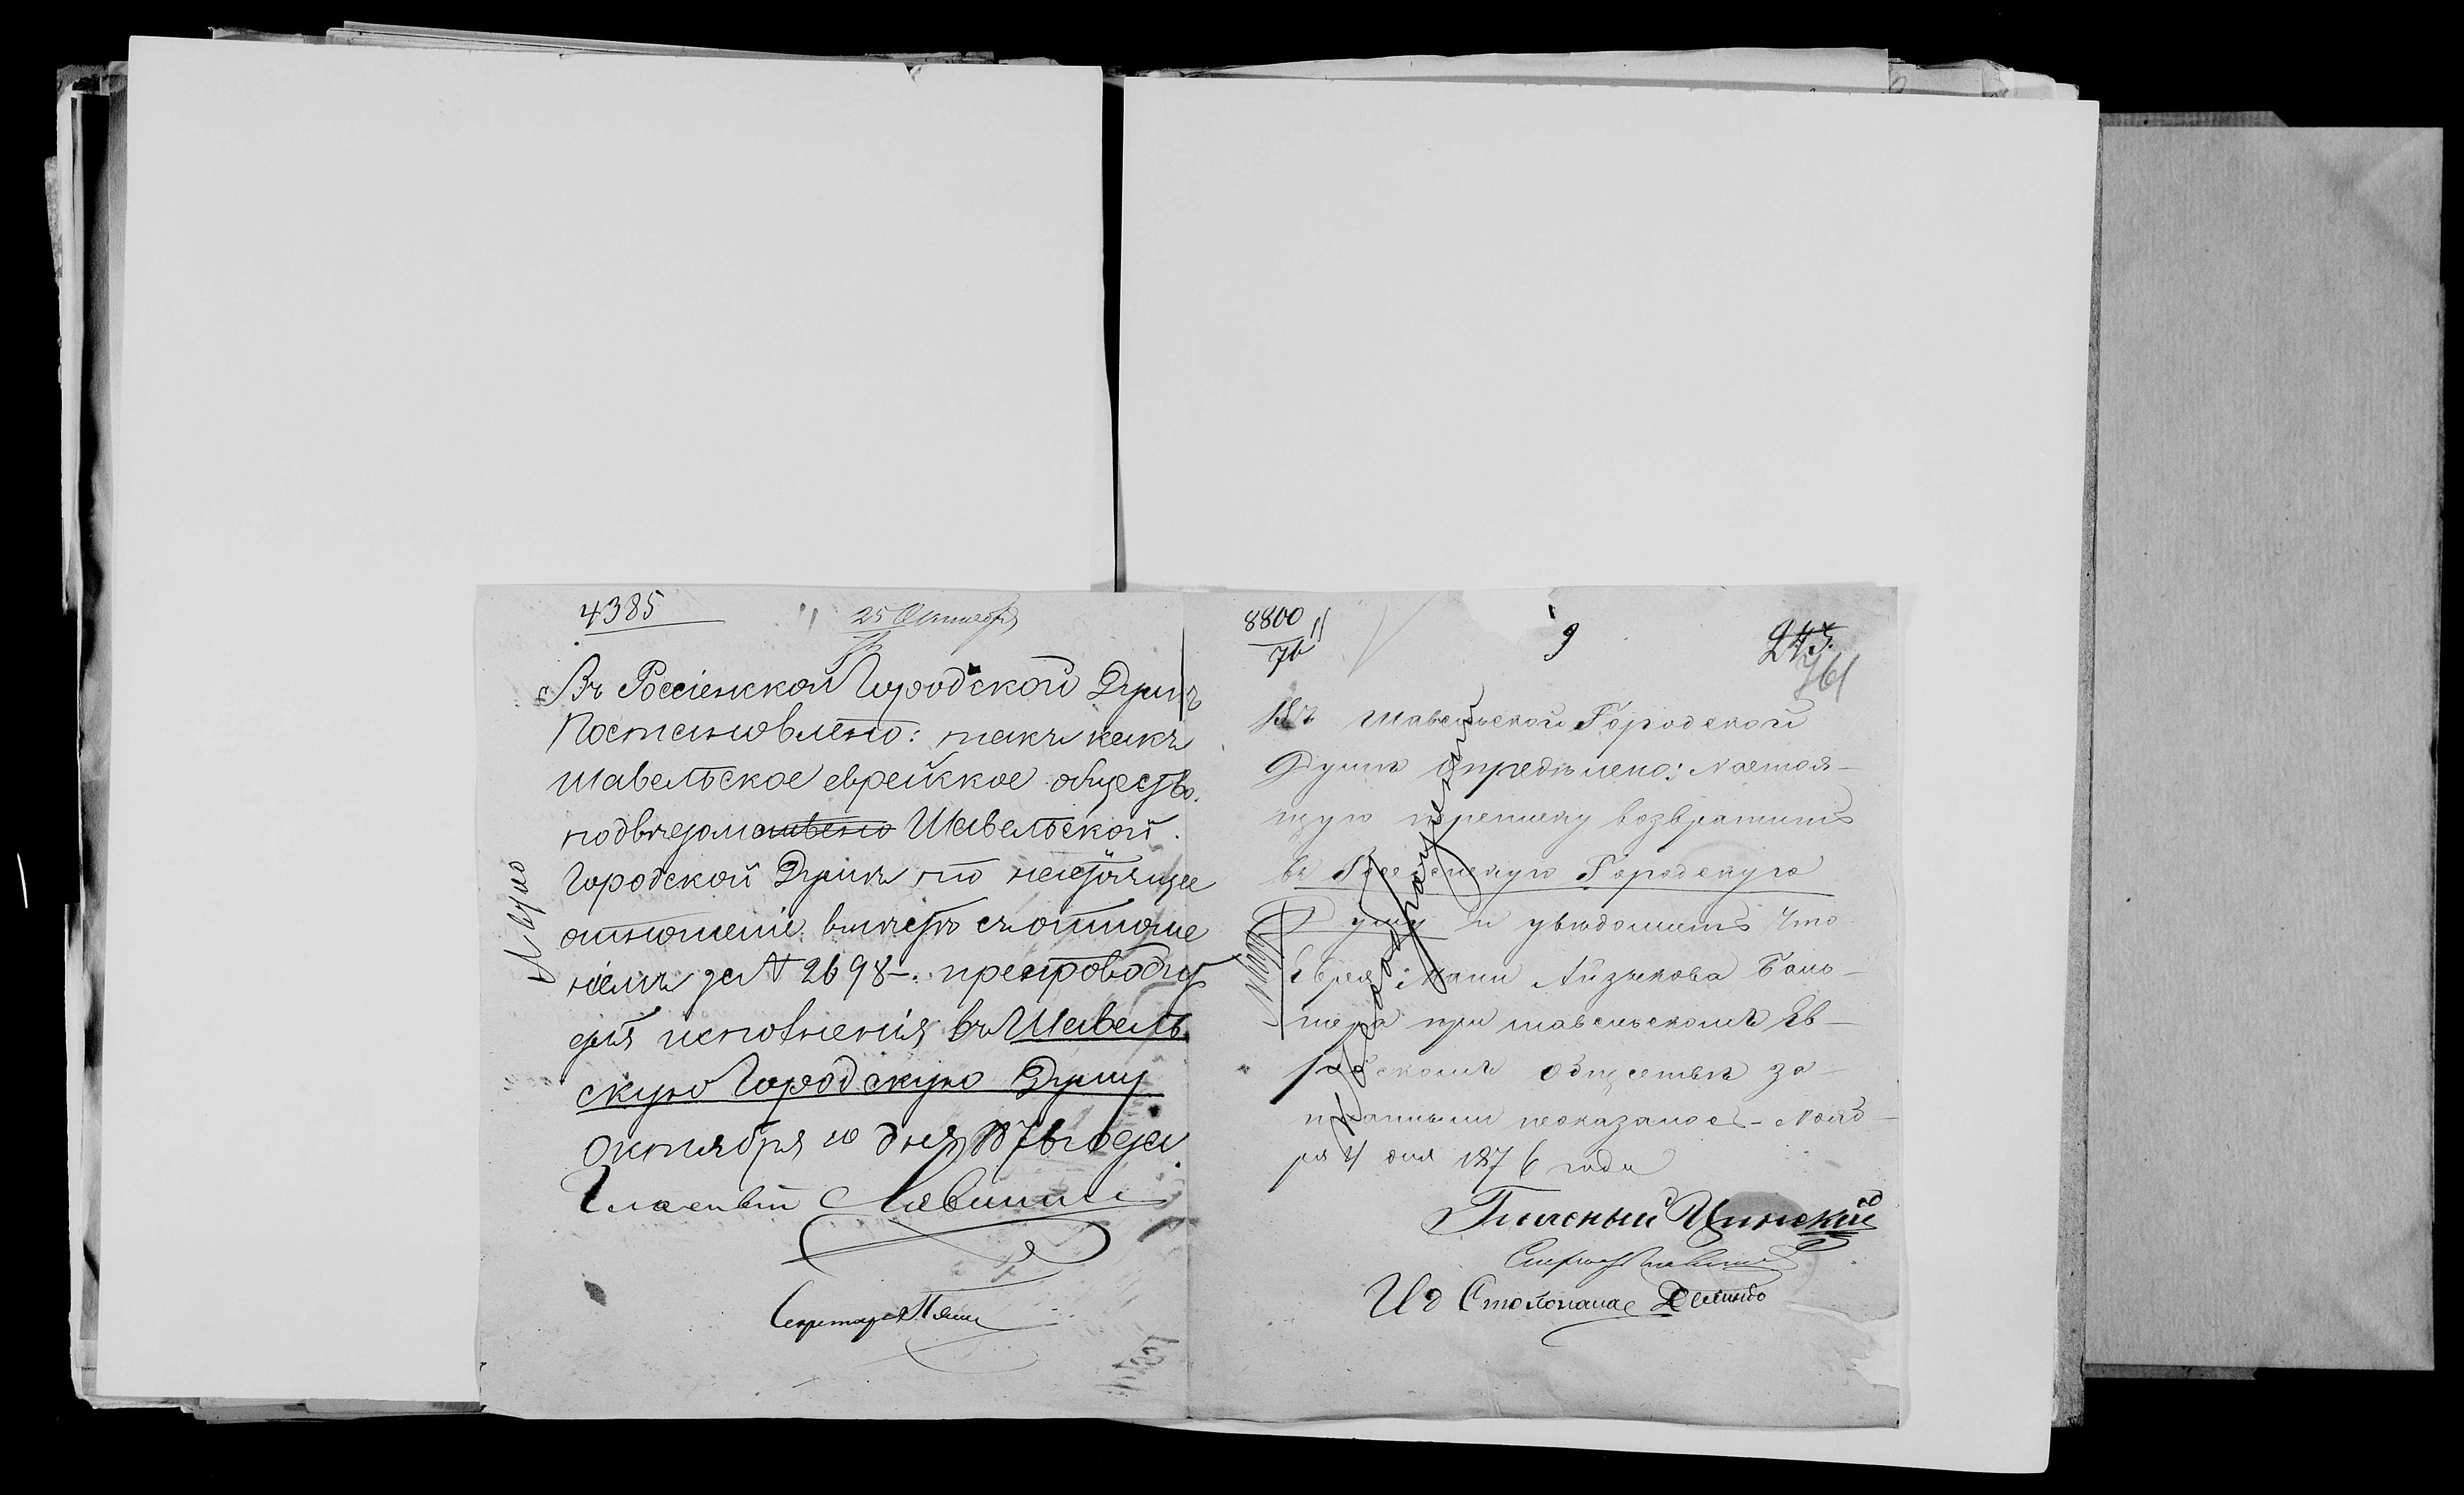 4385
25 Октября
Въ Россіенской Городской Думѣ
Постановлено: такъ какъ
Шавельское еврейское общество
подвѣдом Шавельской
Городской Думѣ то настоящее
отношеніе вмѣстѣ съ отноше
ніемъ за № 2698 препроводить
для исполненія въ Шавель
скую Городскую Думу
Октября 10 дня 1876 года
Гласный Левинъ
Секретарь
8800
76
9
245
761
Въ Шавельской Городской
Думѣ Опредѣлено: Настоя-
щую переписку возвратить
въ Россіенскую Городскую
Думу и увѣдомить что
Еврея Айзыкова
при шавельскомъ Ев-
рейскомъ обществѣ за-
писанными не оказалось - Нояб-
ря 4 дня 1876 года
Гласный
Секретарь
Ид Столонача